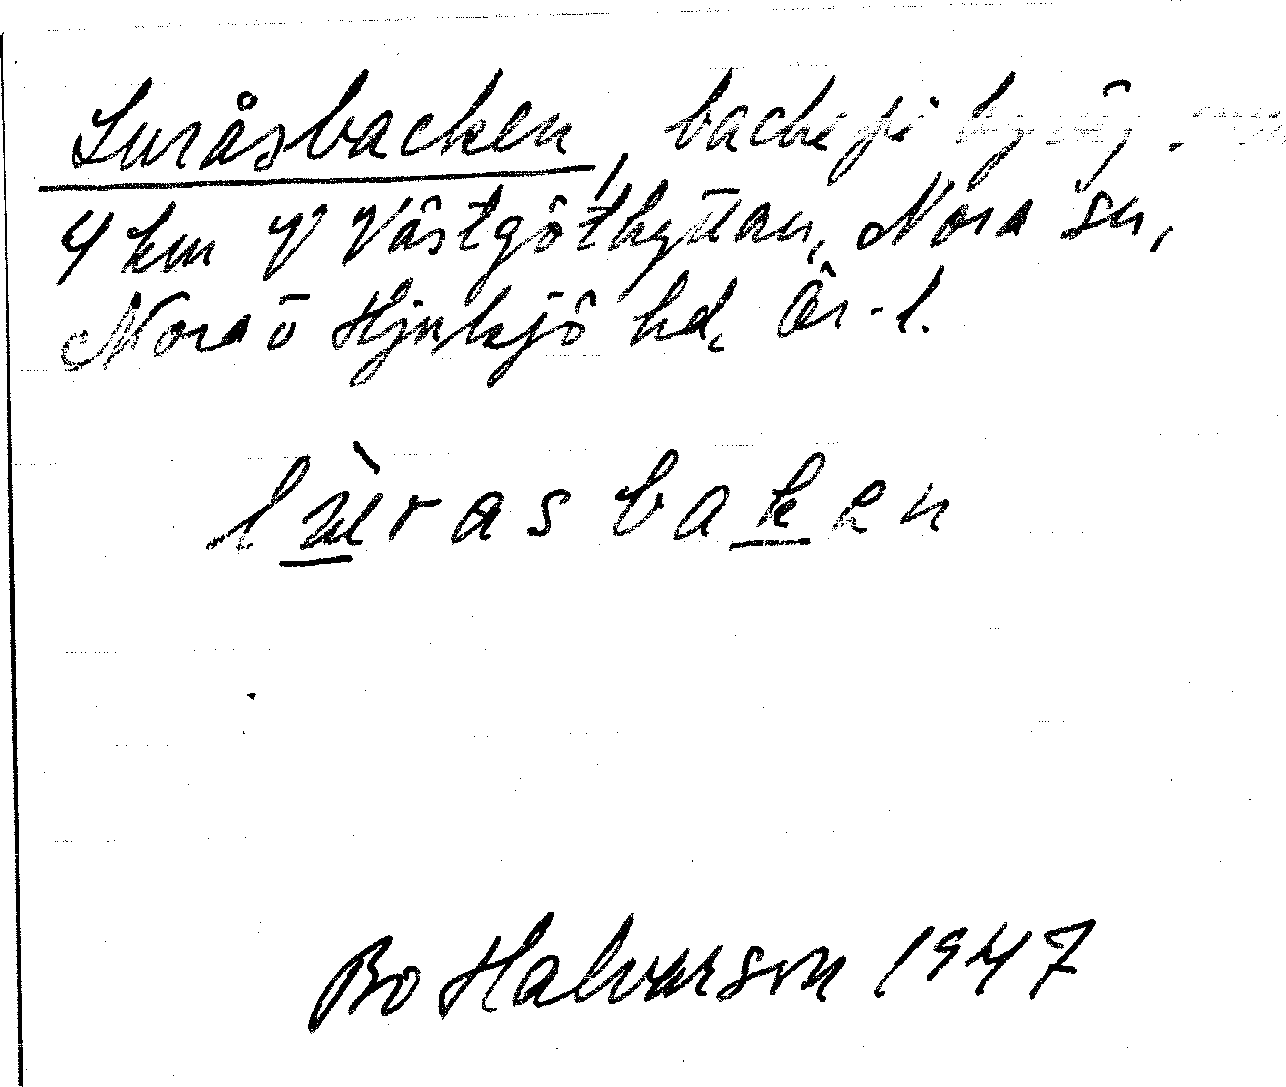 Luråsbacken, backe på byväg, omkr.
4 km V Västgöthyttan, Nora sn,
Nora o Hjulsjö hd, Ör. l.
lùrasbaken
Bo Halvarson 1947